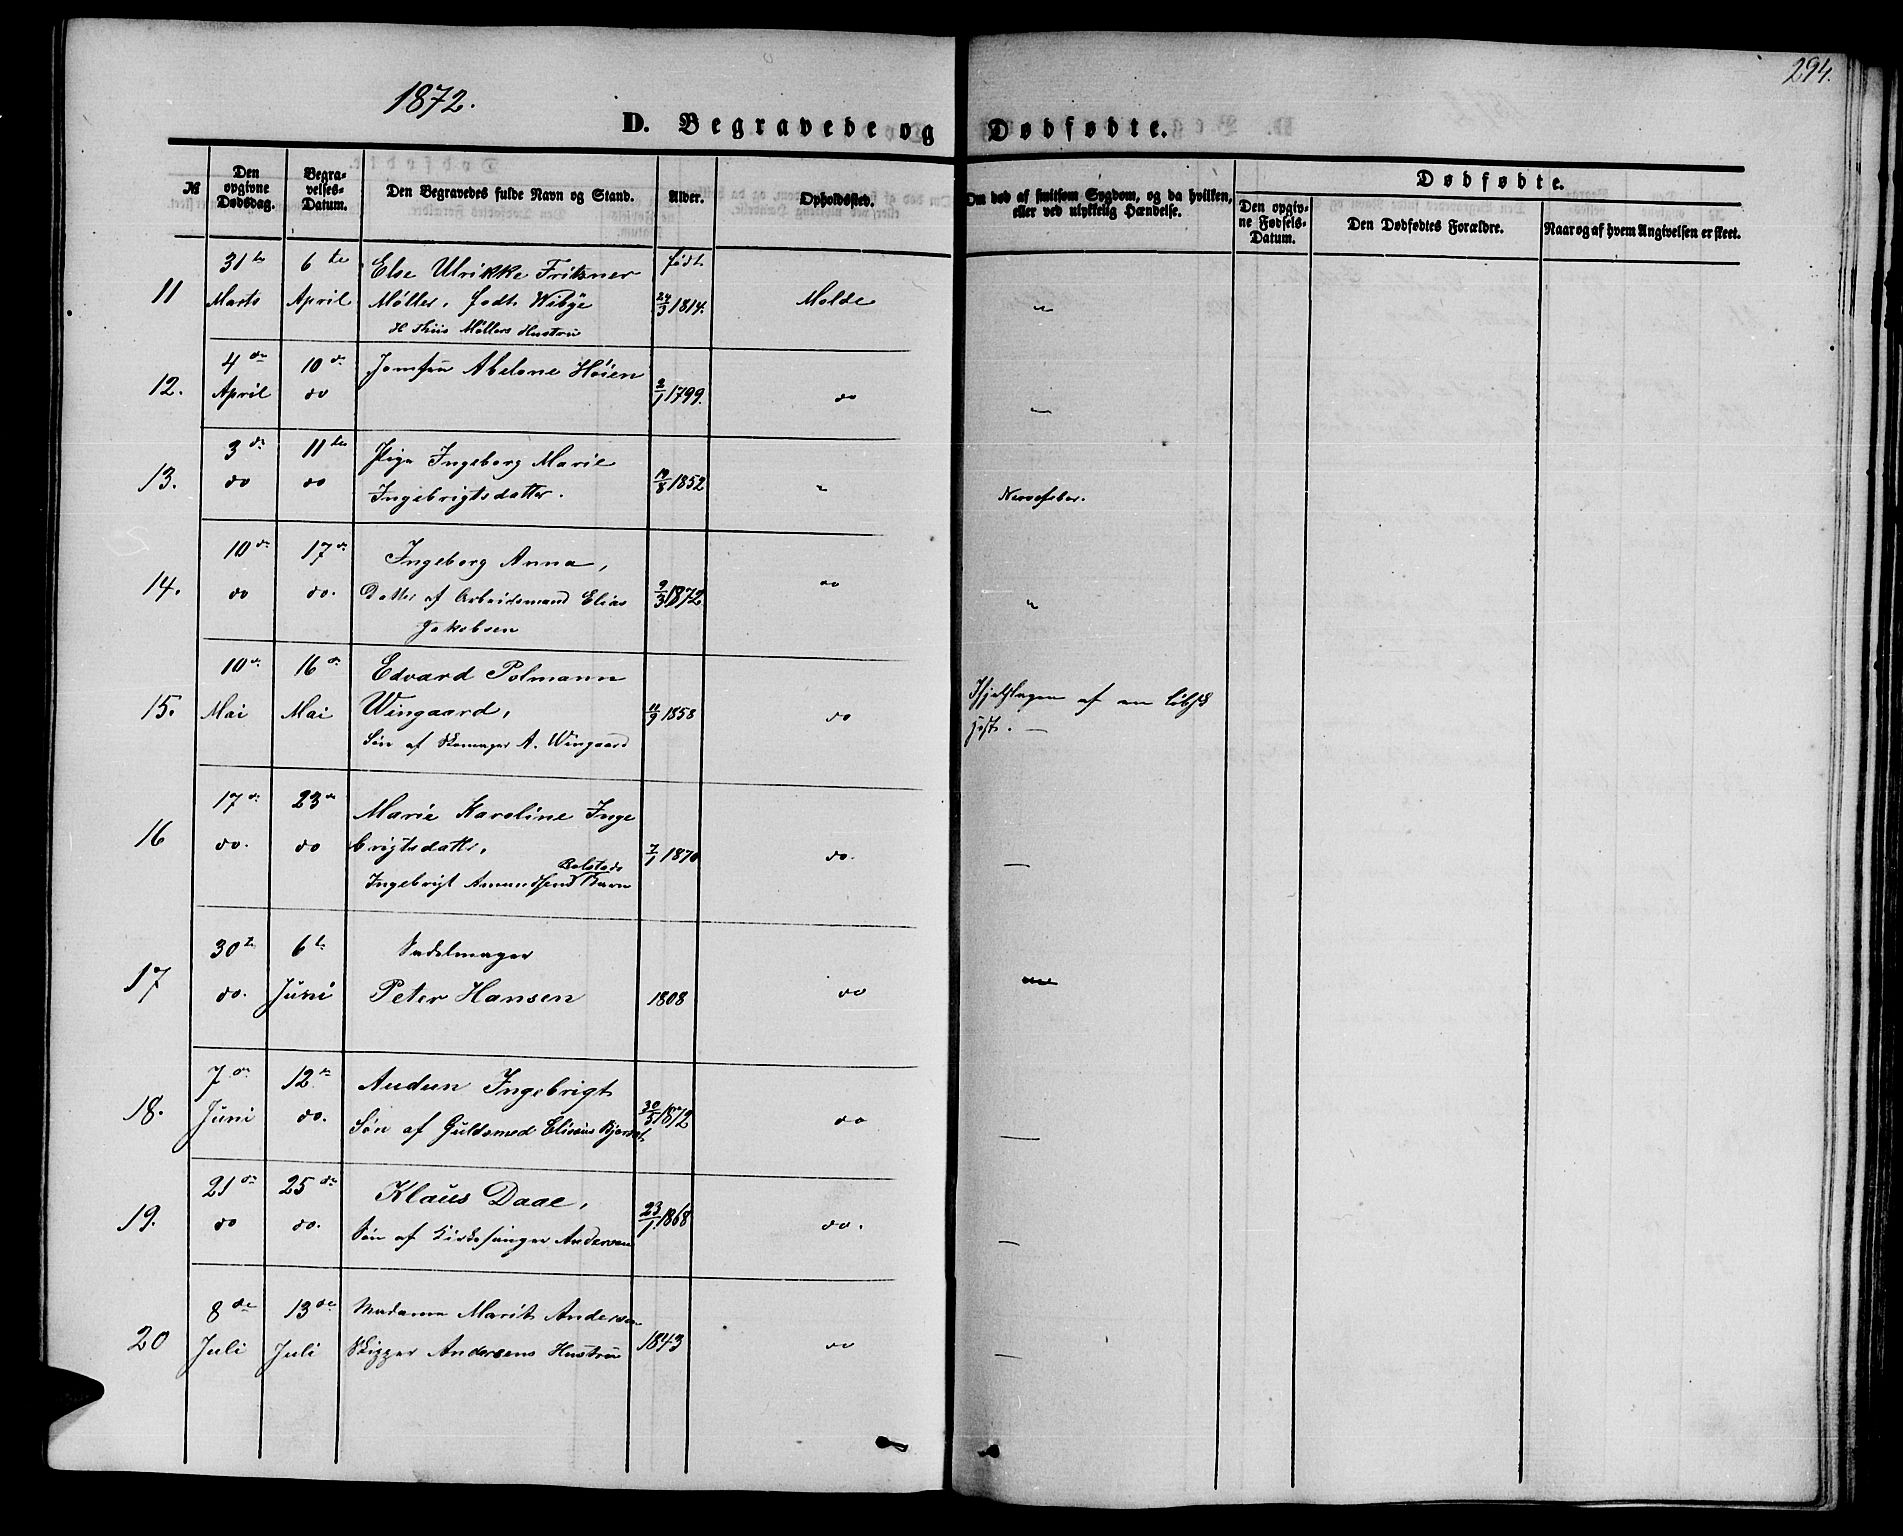 1872.
294.
D. Begravede og Dødfødte.
№
Den opgivne Dødsdag.
Begravelses-Datum.
Den Begravedes fulde Navn og Stand.
Alder.
Opholdssted.
Om død af smitsom Sygdom, og da hvilken, eller ved ulykkelig Hændelse.
Dødfødte.
Den opgivne Fødsels-Datum.
Den Dødfødtes Forældre.
Naar og af hvem Angivelsen er skeet.
31te 6te Else Ulrikke Fritzner født
11 Marts April Møller, født Wibye 24/3 1814. Molde "
H Thiis Møllers Hustru
4de 10de Jomfru Abelone Høien
12. April do 2/1 1799. do —
3de 11te Pige Ingeborg Marie
13. do do Ingebrigtsdatter. 19/8 1852 " Nervefeber.
10de 17de Ingeborg Anna,
14. do do. Datter af Arbeidsmand Elias 9/3 1872 do "
Jakobsen
10de 16de Edvard Polmann
15. Mai Mai Wingaard, 11/9 1858 do Ihjelslagen af en løbsk
Søn af Skomager A. Wingaard Hest. —
17de 23de Marie Karoline Inge
16 do. do brigtsdatter, 7/1 1870 do. —
Bolstads
Ingebrigt Amundsens Barn
30te 6te Sadelmager
17 do. Juni Peter Hansen 1808 do —
7de 12te Audun Ingebrigt
18. Juni do. Søn af Guldsmed Elisæus 30/5 1872 do —
21de 25de Klaus Daae,
19. do do. Søn af Kirkesanger Andersen 23/1 1868 do. —
8de 13de Madame Marit Andersen
20 Juli Juli Skipper Andersens Hustru 1843 do —